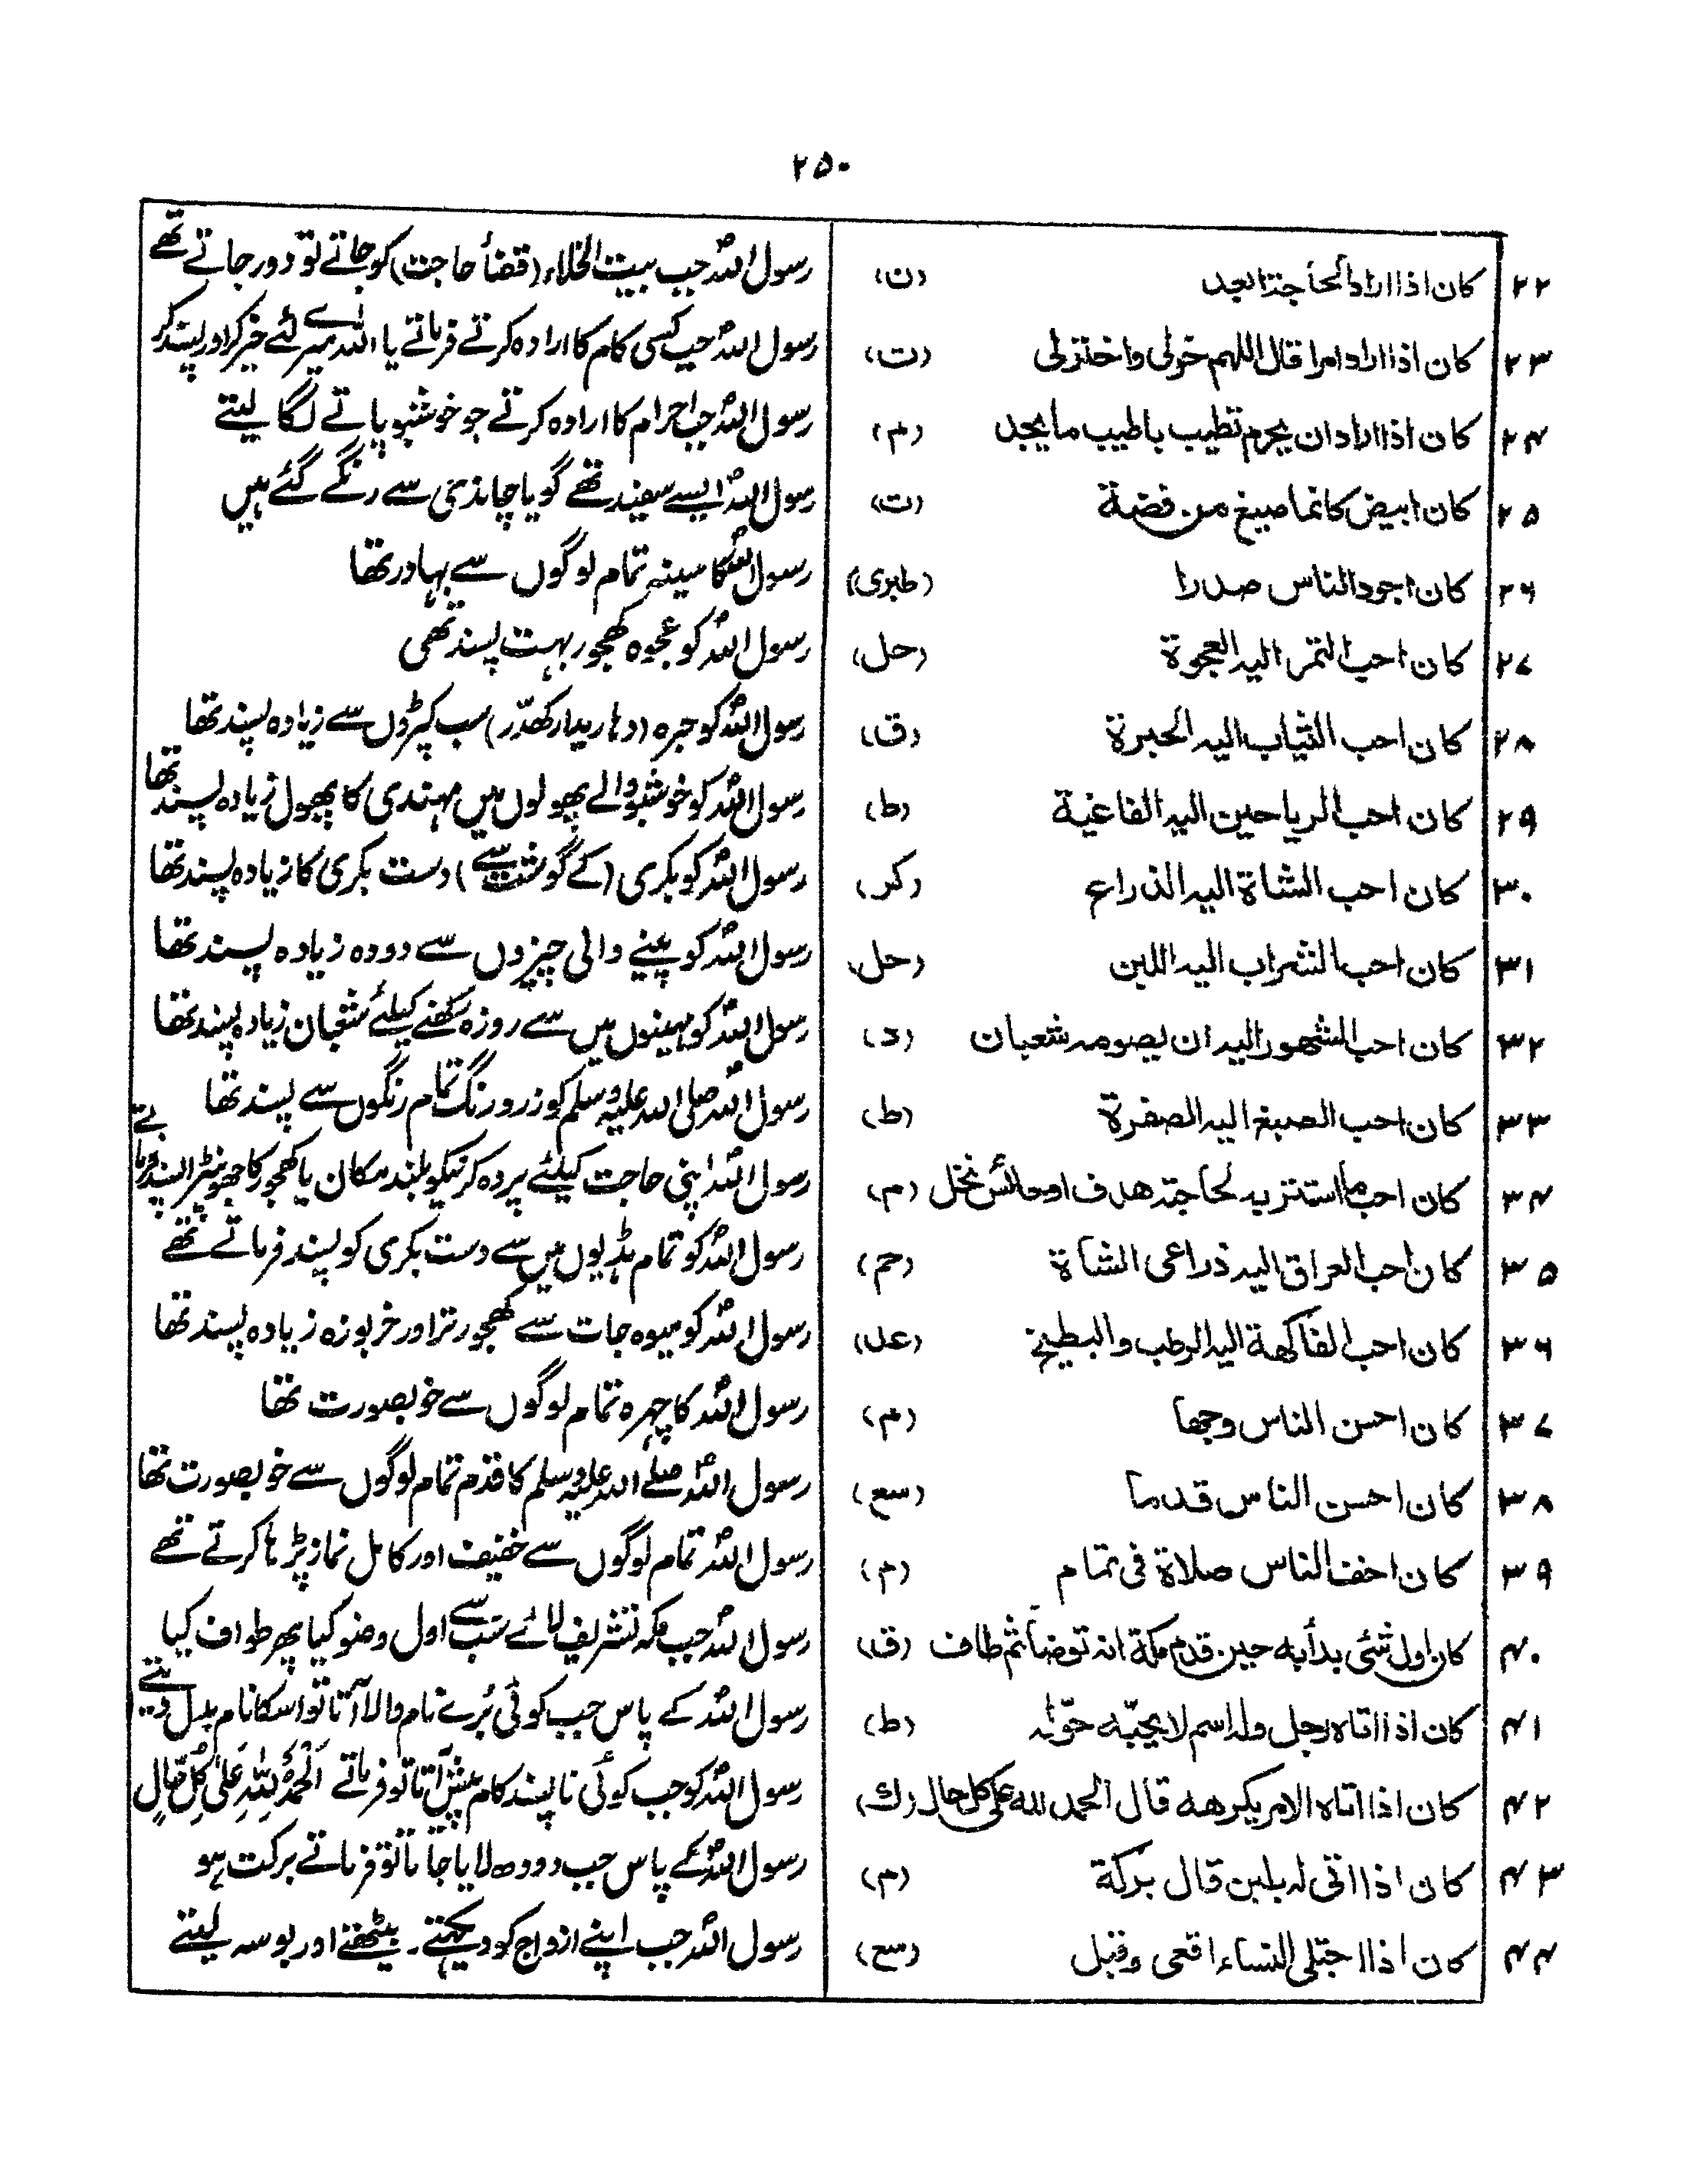 ۲۵۰
۲۲ کان اذا اراد الحاجۃ ابعد (ن) رسول اللہؐ جب بیت الخلاء (قضأ حاجت) کو جاتے تو دور جاتے تھے
۲۳ کان اذا اراد امرا قال اللہم خرلی واخترلی (ت) رسول اللہؐ جب کسی کام کا ارادہ کرتے فرماتے یا اللہ میرے لئے خیر کر اور پسند کر
۲۴ کان اذا اراد ان یحرم تطیب باطیب ما یجد (م) رسول اللہؐ جب احرام کا ارادہ کرتے جو خوشبو پاتے لگا لیتے
۲۵ کان ابیض کانما صیغ من فضۃ (ت) رسول اللہؐ ایسے سفیند تھے گویا چاندی سے رنگے گئے ہیں
۲۶ کان اجود الناس صدرا (طبری) رسول اللہؐ کا سینہ تمام لوگوں سے بہادر تھا
۲۷ کان احب التمر الیہ العجوۃ (حل) رسول اللہؐ کو عجوہ کھجور بہت پسند تھی
۲۸ کان احب الثیاب الیہ الحبرۃ (ق) رسول اللہؐ کو حبرہ (دہاریدار کھدّر) سب کپڑوں سے زیادہ پسند تھا
۲۹ کان احب الریاحین الیہ الفاغیۃ (ط) رسول اللہؐ کو خوشبو والے پھولوں میں مہندی کا پھول زیادہ پسند تھا
۳۰ کان احب الشاۃ الیہ الذراع (کر) رسول اللہؐ کو بکری (کے گوشت سے) دست بکری کا زیادہ پسند تھا
۳۱ کان احب الشراب الیہ اللبن (حل) رسول اللہؐ کو پینے والی چیزوں سے دودہ زیادہ پسند تھا
۳۲ کان احب الشھور الیہ ان یصومہ شعبان (د) رسول اللہؐ کو مہینوں میں سے روزہ رکھنے کیلئے شعبان زیادہ پسند تھا
۳۳ کان احب الصبغ الیہ الصفرۃ (ط) رسول اللہؐ صلی اللہ علیہ وسلم کو زرد رنگ تمام رنگوں سے پسند تھا
۳۴ کان احب ما استتر بہ لحاجتہ ھدف او حائش نخل (م) رسول اللہؐ اپنی حاجت کیلئے پردہ کرنیکو بلند مکان یا کھجور کا جھونپڑا پسند فرماتے
۳۵ کان احب العراق الیہ ذراعی الشاۃ (حم) رسول اللہؐ کو تمام ہڈیوں میں سے دست بکری کو پسند فرماتے تھے
۳۶ کان احب الفاکھۃ الیہ الرطب والبطیخ (عد) رسول اللہؐ کو میوہ جات سے کھجور تر اور خربوزہ زیادہ پسند تھا
۳۷ کان احسن الناس وجھا (م) رسول اللہؐ کا چہرہ تمام لوگوں سے خوبصورت تھا
۳۸ کان احسن الناس قدما (سع) رسول اللہؐ صلے اللہ علیہ وسلم کا قدم تمام لوگوں سے خوبصورت تھا
۳۹ کان اخف الناس صلاۃ فی تمام (م) رسول اللہؐ تمام لوگوں سے خفیف اور کامل نماز پڑہا کرتے تھے
۴۰ کان اول شئی بدأ بہ حین قدم مکۃ انہ توضأ ثم طاف (ق) رسول اللہؐ جب مکہ تشریف لائے سب سے اول وضو کیا پھر طواف کیا
۴۱ کان اذا اتاہ رجل ولہ اسم لا یحبّہ حوّلہ (ط) رسول اللہؐ کے پاس جب کوئی بُرے نام والا آتا تو اسکا نام بدل دیتے
۴۲ کان اذا اتاہ الامر یکرھہ قال الحمد للہ علی کل حال (ک) رسول اللہؐ کو جب کوئی ناپسند کام پیش آتا تو فرماتے اَلْحَمْدُ لِلّٰہِ عَلٰی کُلِّ حَالٍ
۴۳ کان اذا اتی لہ بلبن قال برکۃ (م) رسول اللہؐ کے پاس جب دودھ لایا جاتا تو فرماتے برکت ہو
۴۴ کان اذا اجتلی النساء اقعی وقبل (سع) رسول اللہؐ جب اپنے ازواج کو دیکھتے۔ بیٹھتے اور بوسہ لیتے